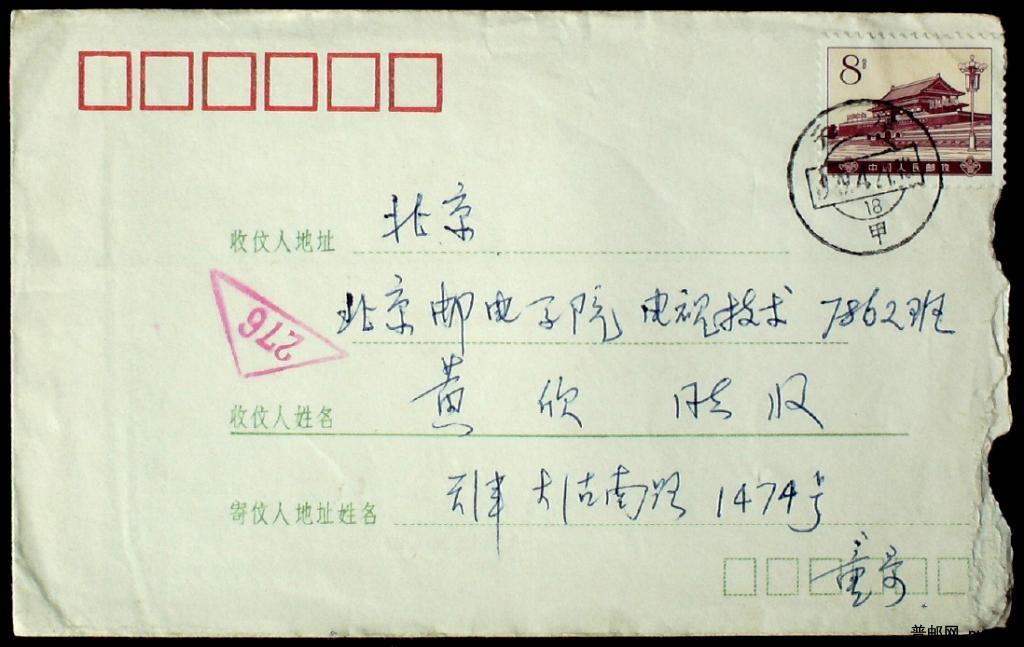 8分
中国人民邮政
天津
18
甲
收信人地址 北京
北京邮电学院 电视技术 7862班
276
收信人姓名 黄欣 同志收
寄信人地址姓名 天津大沽南路1474号
童
普邮网